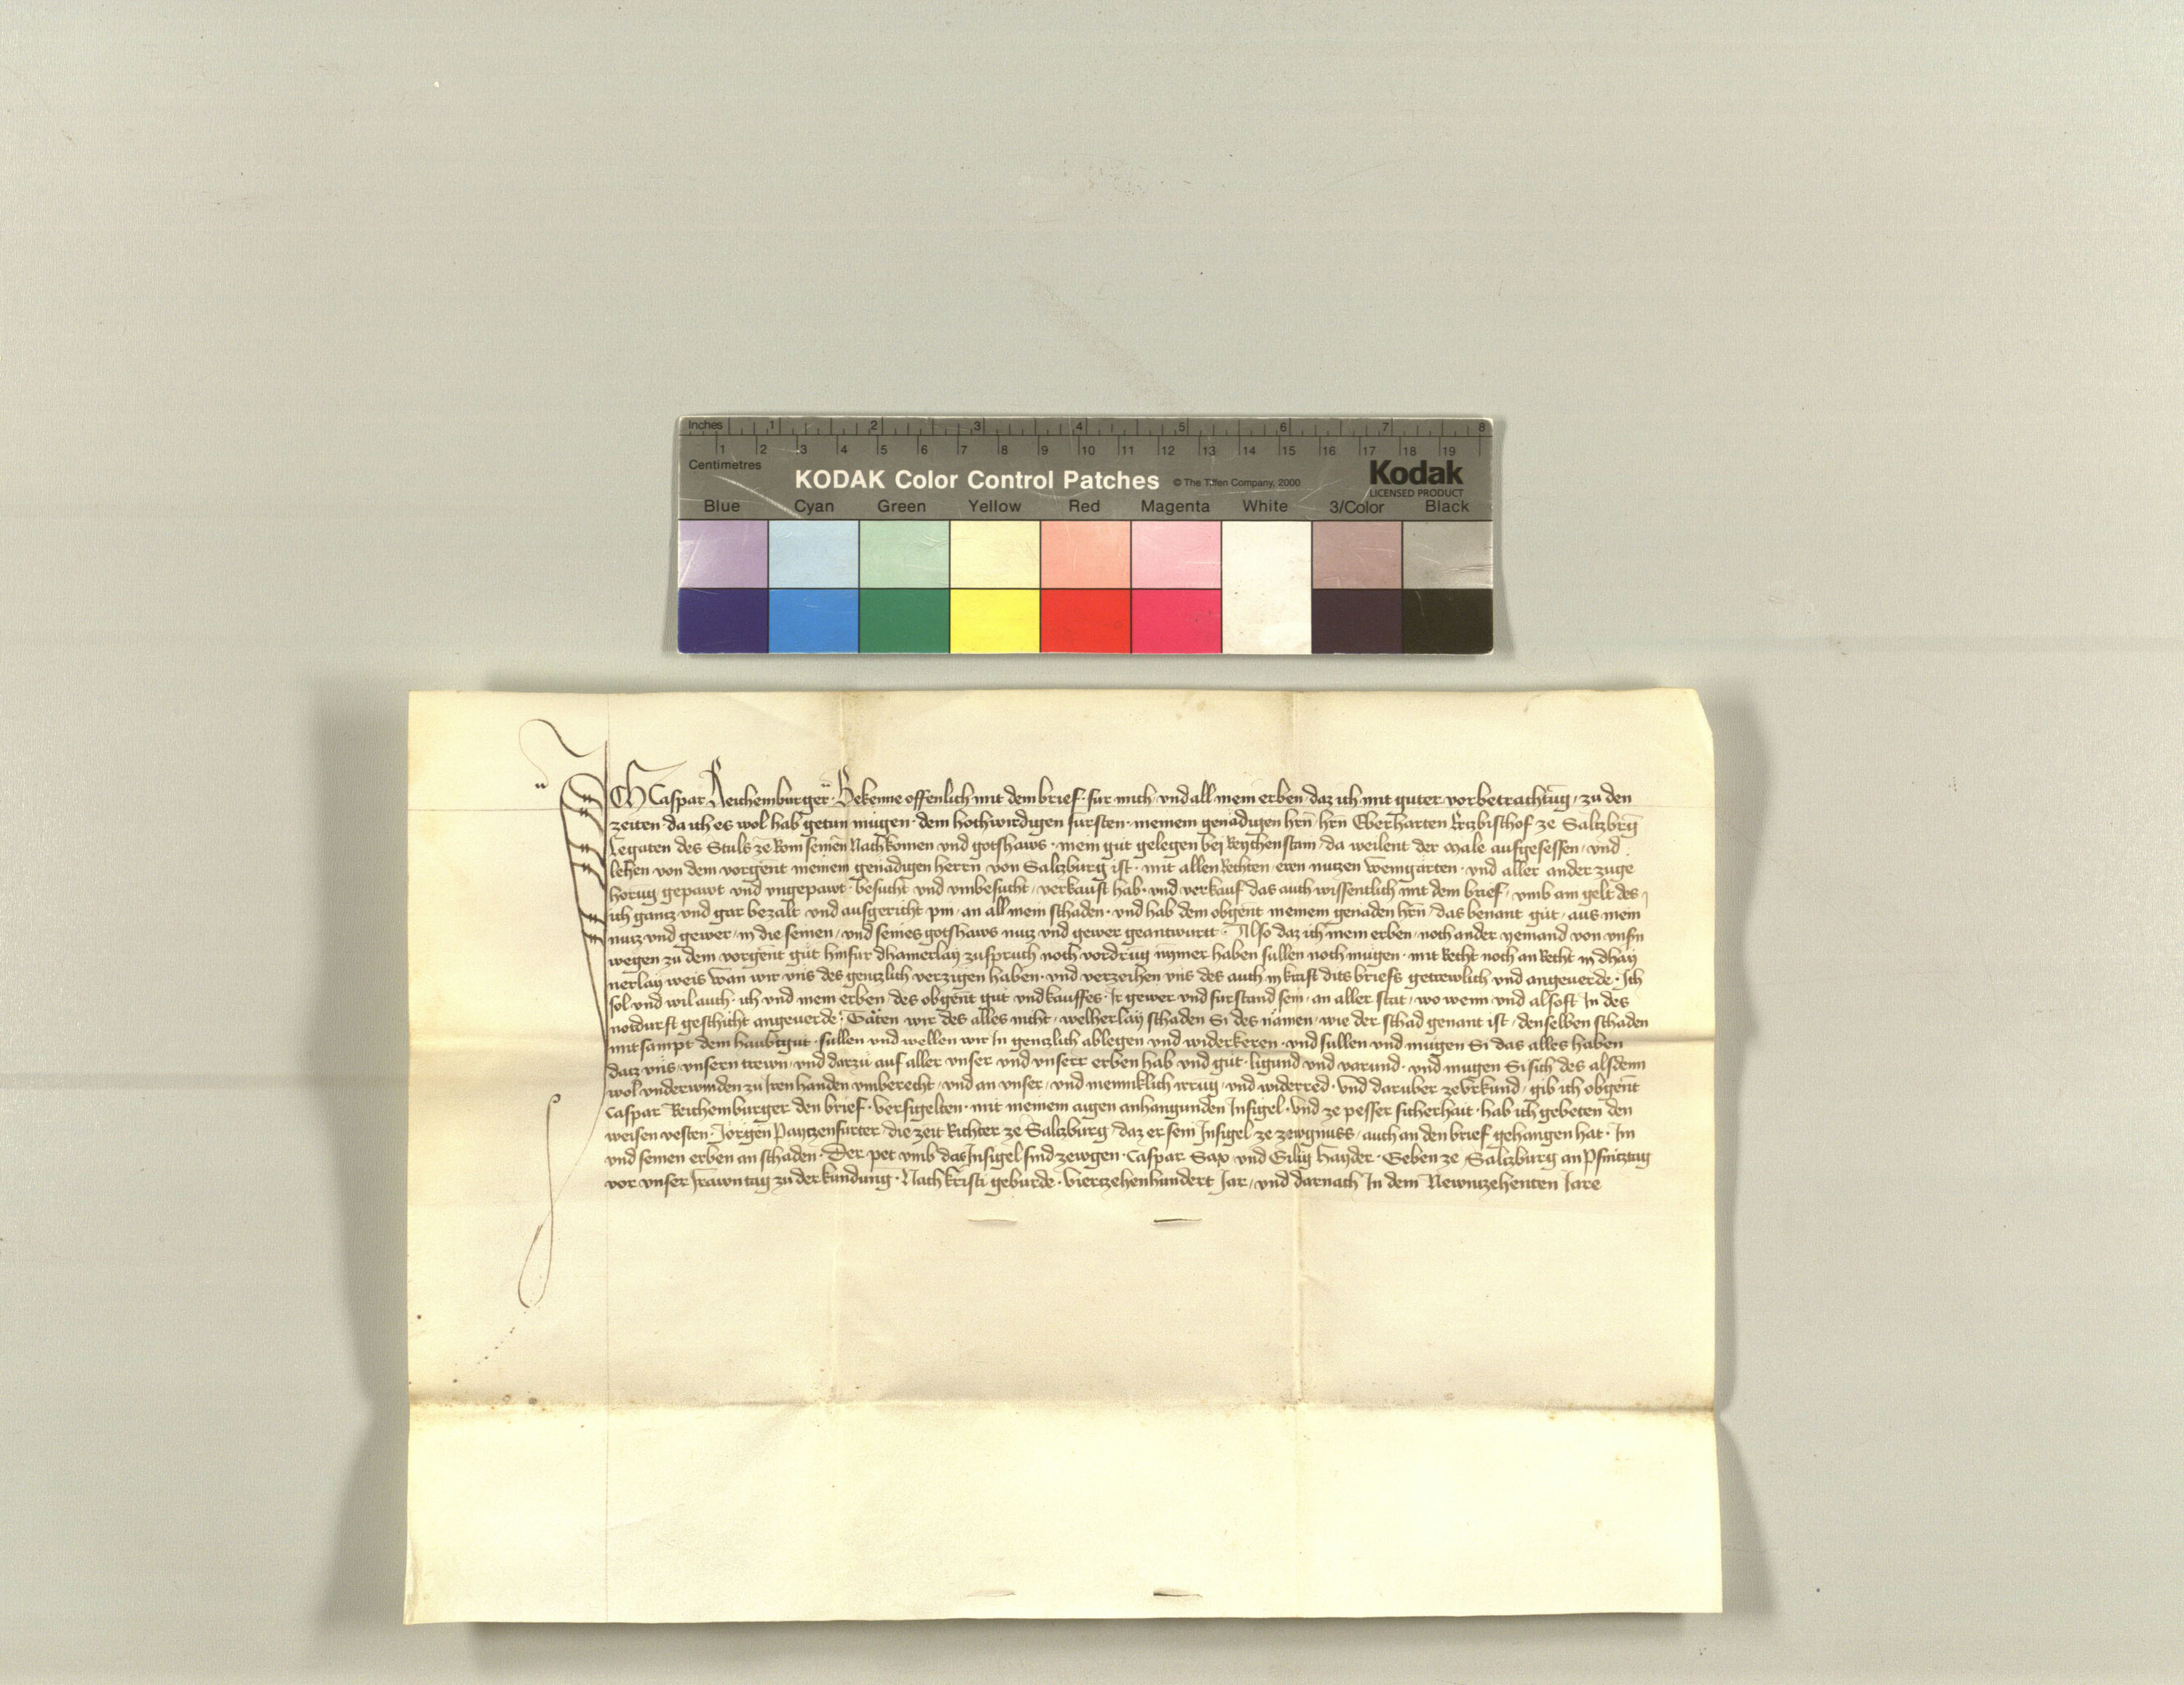 Inches 1 2 3 4 5 6 7 8
1 2 3 4 5 6 7 8 9 10 11 12 13 14 15 16 17 18 19
Centimetres
KODAK Color Control Patches © The Tiffen Company, 2000 Kodak
LICENSED PRODUCT
Blue Cyan Green Yellow Red Magenta White 3/Color Black
ICH Caspar Reichemburger · Bekenne offenlich mit dem brief · fur mich vnd all mein erben daz ich mit guter vorbetrachtūg / zu den
zeiten da ich es wol hab getun mugen · dem hochwirdigen fursten · meinem genadigen hrn̄ / hrn̄ Eberharten Ertzbischof ze Salzbrḡ
Legaten des Stuls ze Rom seinen Nachkomen vnd gotshaws · mein gut gelegen bej Reychenstain / da weilent der Male aufgesessen / vnd
lehen von dem vorgent meinem genadigen herrn von Salczburg ist · mit allen Rechten / eren nutzen weingarten · vnd aller ander zuge
horug gepawt vnd vngepawt · besucht vnd vmbesucht / verkauft hab · vnd verkauf das auch wissentlich mit dem brief / vmb ain gelt des
ich gantz vnd gar bezalt vnd ausgericht pin / an all mein schaden · vnd hab dem obgent meinem genaden hrn̄ / das benant gut / aus mein
nutz vnd gewer / in die seinen / vnd seines gotshaws nutz vnd gewer geantwurtt · Also daz ich mein erben / noch ander yemand von vnsn̄
wegen zu dem vorgent gut hinfur dhainerlay zuspruch noch vordrug nymer haben sullen noch mugen · mit Recht noch an Recht in dhay
nerlay weis wan wir vns des gentzlich verzigen haben · vnd verzeihen vns des auch in kraft dits briefs getrewlich vnd angeuerde · Ich
sol vnd wil auch · ich vnd mein erben / des obgent gut vnd kauffes · Ir gewer vnd furstand sein / an aller stat / wo wenn vnd alsoft In des
notdurft geschicht angeuerde · Taten wir des alles nicht / welherlay schaden Si des namen / wie der schad genant ist / denselben schaden
mitsampt dem haubtgut · sullen vnd wellen wir In gentzlich ablegen vnd widerkeren · vnd sullen vnd mugen Si das alles haben
datz vns / vnsern trewn / vnd darzu auf aller vnser vnd vnserr erben hab vnd gut · ligund vnd varund · vnd mugen Si sich des alsdenn
wol vnderwinden zu Iren handen vmberecht / vnd an vnser / vnd menniklich irrug / vnd widerred · vnd daruber ze vrkund / gib ich obgent
Caspar Reichemburger den brief · versigelten · mit meinem aigen anhangunden Insigel · vnd ze pesser sicherhait · hab ich gebeten den
weisen vesten · Jorgen Pantzenfurter / die zeit Richter ze Salczburg / daz er sein Insigel ze zewgnuss / auch an den brief gehangen hat · Im
vnd seinen erben an schaden · Der pet vmb das Insigel sind zewgen · Caspar Sax / vnd Gilig Hayder · Geben ze Salczburg an Pfintztag
vor vnser Frawntag zu der kundung · Nach kristi geburde · viertzehenhundert Jar / vnd darnach In dem Newntzehenten Jare